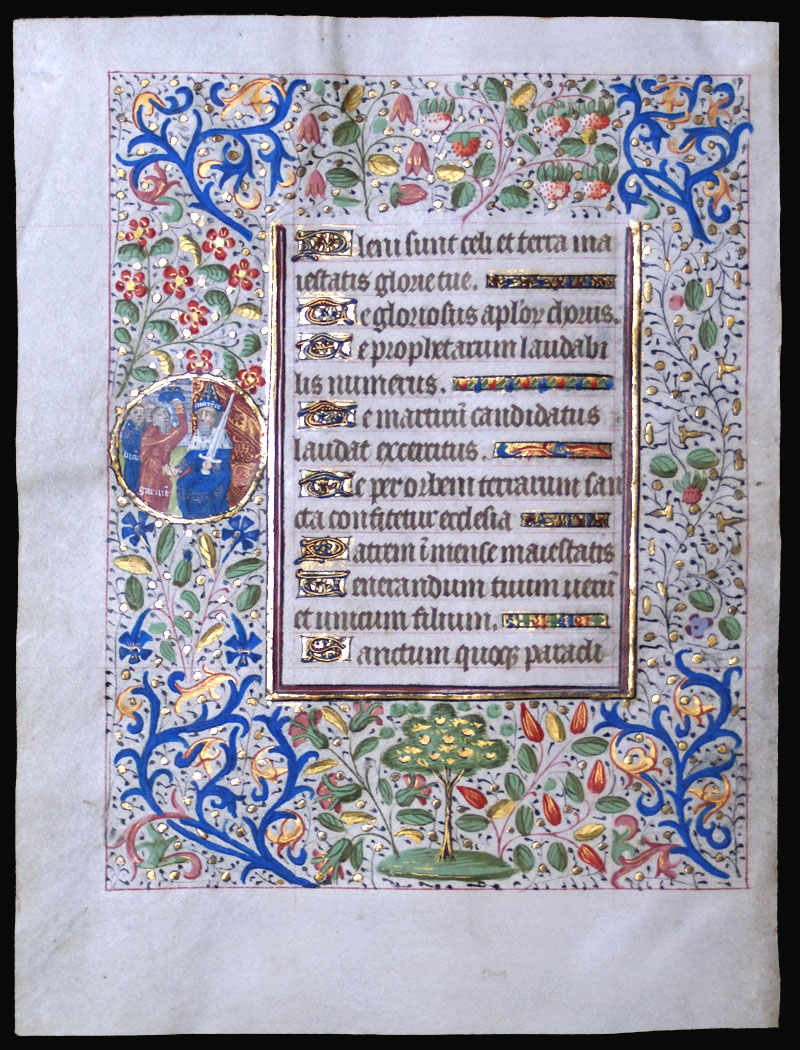 Pleni sunt celi et terra ma
iestatis glorie tue.
Te gloriosus aplor chorus.
Te prophetarum laudabi
lis numerus.
Te martirū candidatus
laudat excercitus.
Te per orbem terrarum san
cta confitetur ecclesia
Patrem īmense maiestatis
Venerandum tuum verū
et unicum filium.
Sanctum quoqꝫ paracli